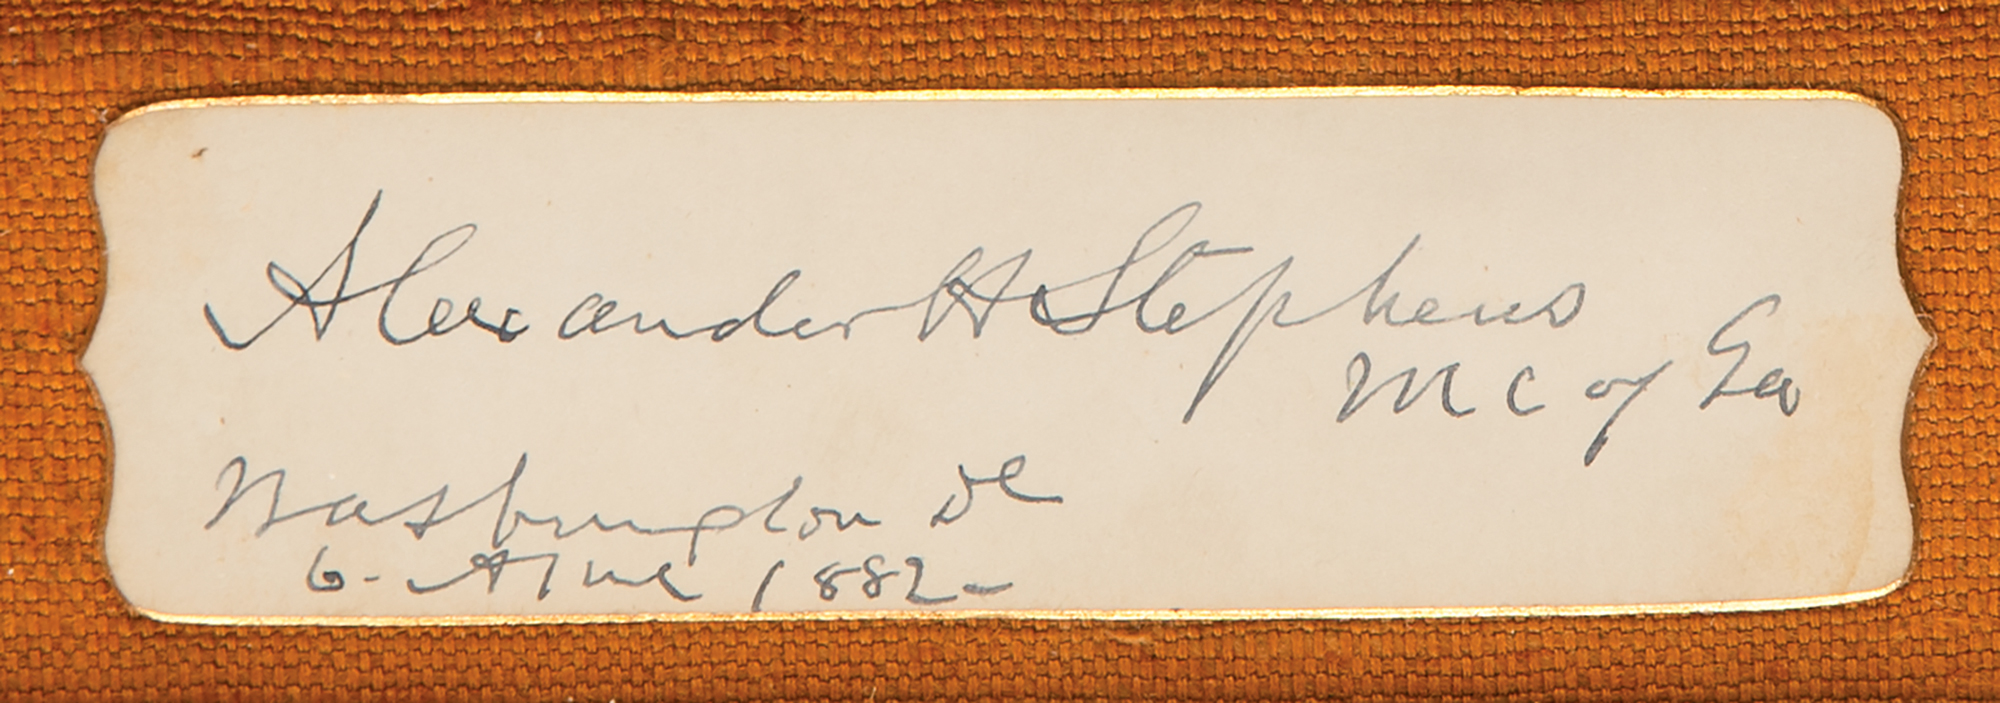 Alexander H Stephens
M C of Ga
Washington DC
6 - April 1882 -